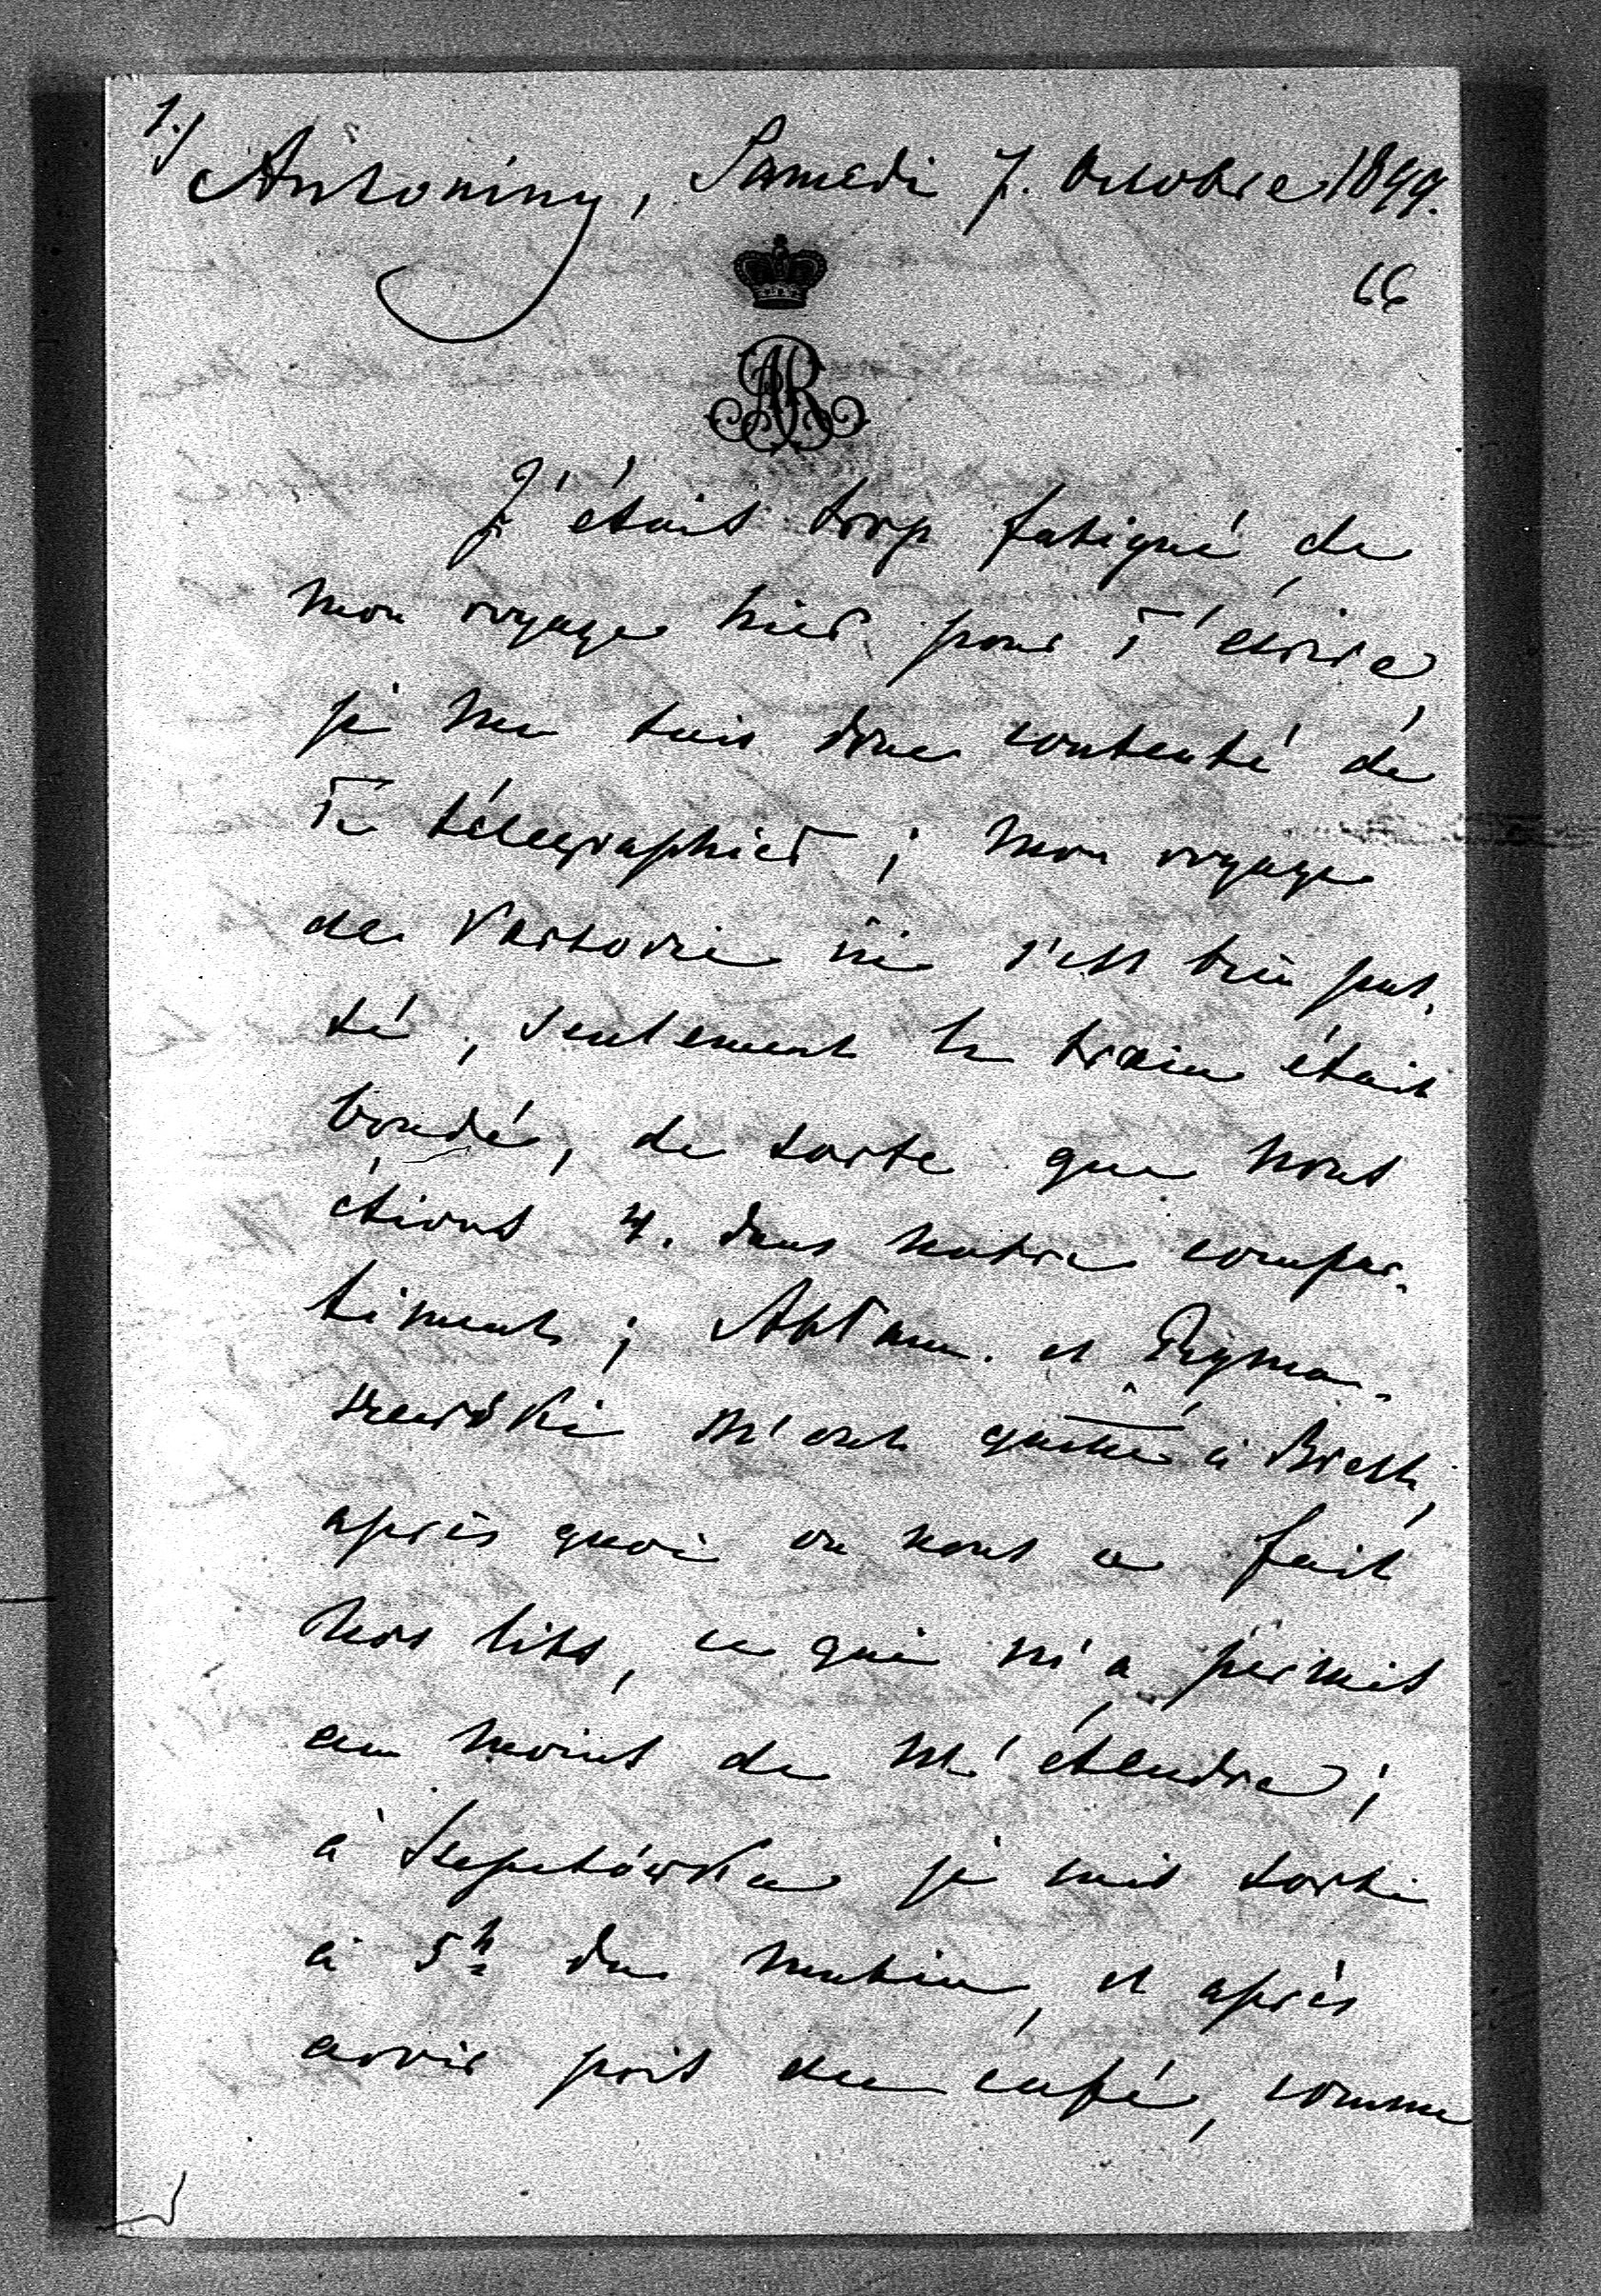 1.)
Antoniny, Samedi 7. Octobre 1899.
66
AR
J'étais trop fatigué de
mon voyage hier pour T'écrire,
je me suis donc contenté de
Te télégraphier ; mon voyage
de Varsovie ici s'est bien pas-
sé, seulement le train était
bondé, de sorte que nous
étions 4. dans notre compar-
timent ; et
m'ont quitté à Brest,
après quoi on nous a fait
nos lits, ce qui m'a permis
au moins de m'étendre ;
à Szepetówka je suis sorti
à 5h du matin, et après
avoir pris du café, comme